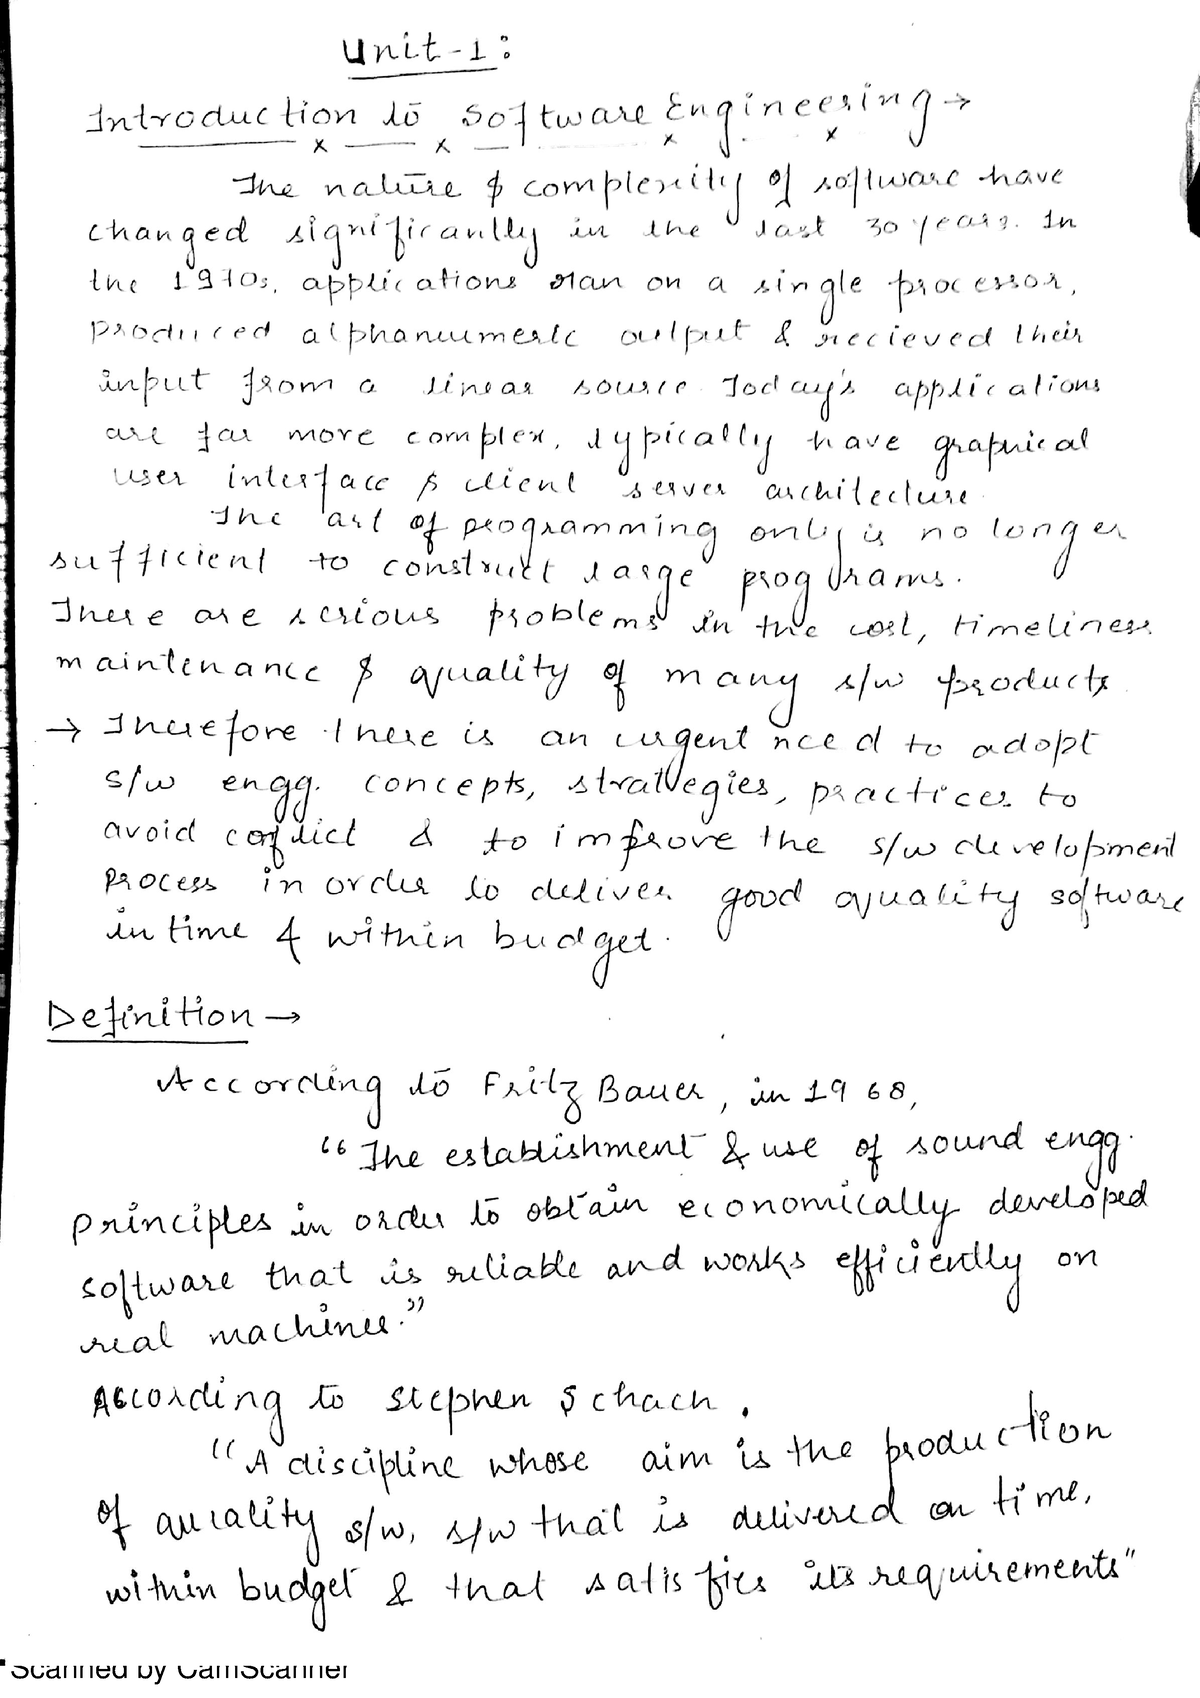 Unit-1:
Introduction to Software Engineering →
The nature & complexity of software have
changed significantly in the last 30 years. In
the 1970s, applications ran on a single processor,
produced alphanumeric output & recieved their
input from a linear source. Today's applications
are far more complex, typically have graphical
user interface & client server architecture.
The art of programming only is no longer
sufficient to construct large programs.
There are serious problems in the cost, timeliness
maintenance & quality of many s/w products
→ Therefore there is an urgent need to adopt
s/w engg. concepts, strategies, practices to
avoid conflict & to improve the s/w development
process in order to deliver good quality software
in time & within budget.
Definition →
According to Fritz Bauer, in 1968,
"The establishment & use of sound engg.
principles in order to obtain economically developed
software that is reliable and works efficiently on
real machines."
According to Stephen Schach,
"A discipline whose aim is the production
of quality s/w, s/w that is delivered on time,
within budget & that satisfies its requirements"
Scanned by CamScanner